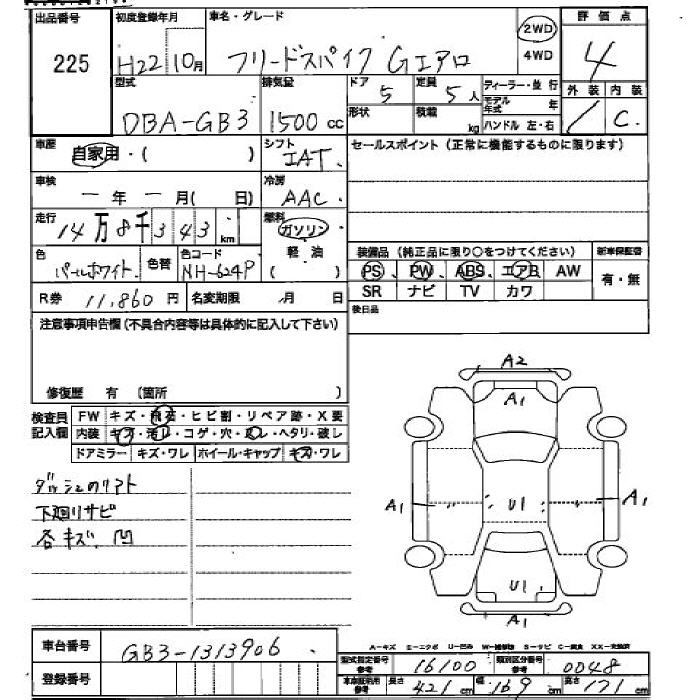 出品番号 初度登録年月 車名・グレード 評価点
225 H22 10月 フリードスパイク Gエアロ 2WD 4WD 4
型式 排気量 ドア 定員 ディーラー・並行 外装 内装
DBA-GB3 1500 cc 5 5人 モデル年式 年
形状 積載 kg ハンドル 左・右 C
車歴 自家用・( ) シフト IAT セールスポイント(正常に機能するものに限ります)
車検 ー年ー月( 日) 冷房 AAC
走行 14万8千343km 燃料 ガソリン
色 パールホワイト 色替 色コード NH-624P 軽油 ( )
装備品(純正品に限り○をつけてください) 新車保証書
PS、 PW、 ABS、 エアB、 AW 有・無
SR ナビ TV カワ
R券 11,860円 名変期限 月 日 後日品
注意事項申告欄(不具合内容等は具体的に記入して下さい)
修復歴 有 (箇所 )
検査員記入欄 FW キズ・飛石・ヒビ割・リペア跡・X要
内装 キズ・汚レ・コゲ・穴・スレ・ヘタリ・破レ
ドアミラー キズ・ワレ ホイール・キャップ キズ・ワレ
ダッシュのリアト
下廻りサビ
各キズ、凹
A2
A1
A1 U1 A1
U1
A1
A-キズ E-エクボ U-凹み W-補修跡 S-サビ C-腐食 XX-交換済
車台番号 GB3-1313906
登録番号
型式指定番号 参考 16100 類別区分番号 参考 0048
車庫証明用 参考 長さ 421cm 幅 169cm 高さ 171cm